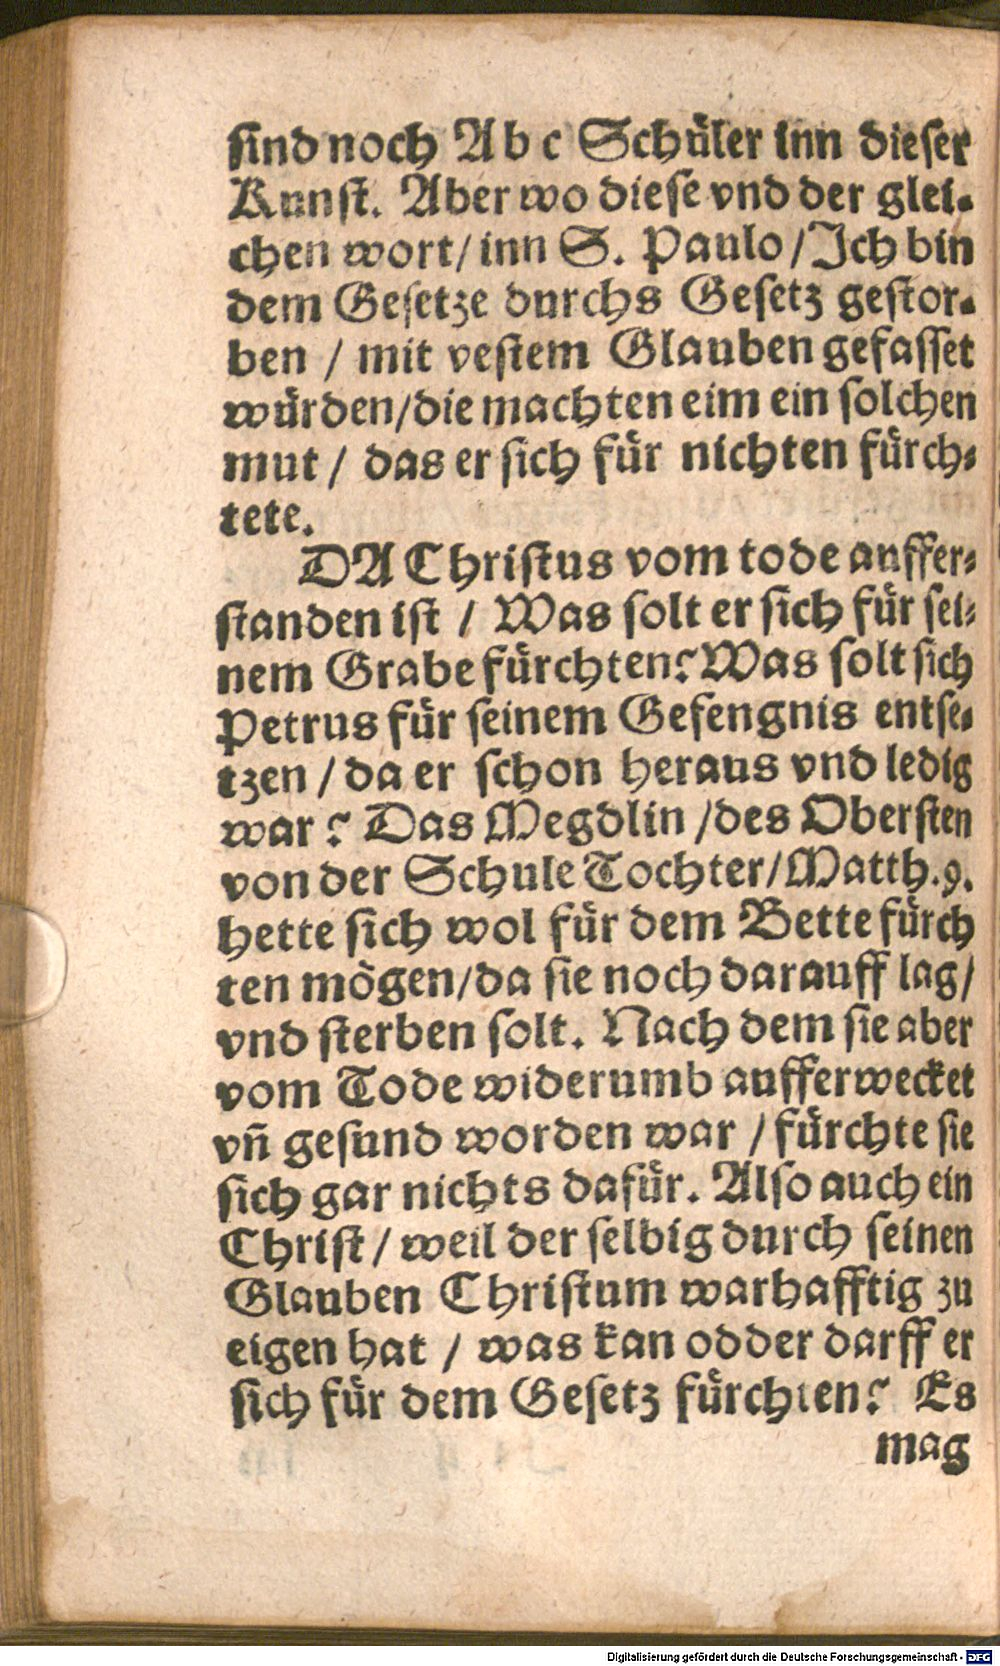 sind noch A b c Schüler inn dieser
Kunst. Aber wo diese vnd der glei-
chen wort/ inn S. Paulo / Ich bin
dem Gesetze durchs Gesetz gestor-
ben / mit vestem Glauben gefasset
würden/die machten eim ein solchen
mut / das er sich für nichten fürch-
tete.
DA Christus vom tode auffer-
standen ist / Was solt er sich für sei-
nem Grabe fürchten? Was solt sich
Petrus für seinem Gefengnis entse-
tzen / da er schon heraus vnd ledig
war? Das Megdlin /des Obersten
von der Schule Tochter/Matth.9.
hette sich wol für dem Bette fürch
ten mögen/da sie noch darauff lag/
vnd sterben solt. Nach dem sie aber
vom Tode widerumb aufferwecket
vñ gesund worden war / fürchte sie
sich gar nichts dafür. Also auch ein
Christ / weil der selbig durch seinen
Glauben Christum warhafftig zu
eigen hat / was kan odder darff er
sich für dem Gesetz fürchten? Es
mag
Digitalisierung gefördert durch die Deutsche Forschungsgemeinschaft - DFG